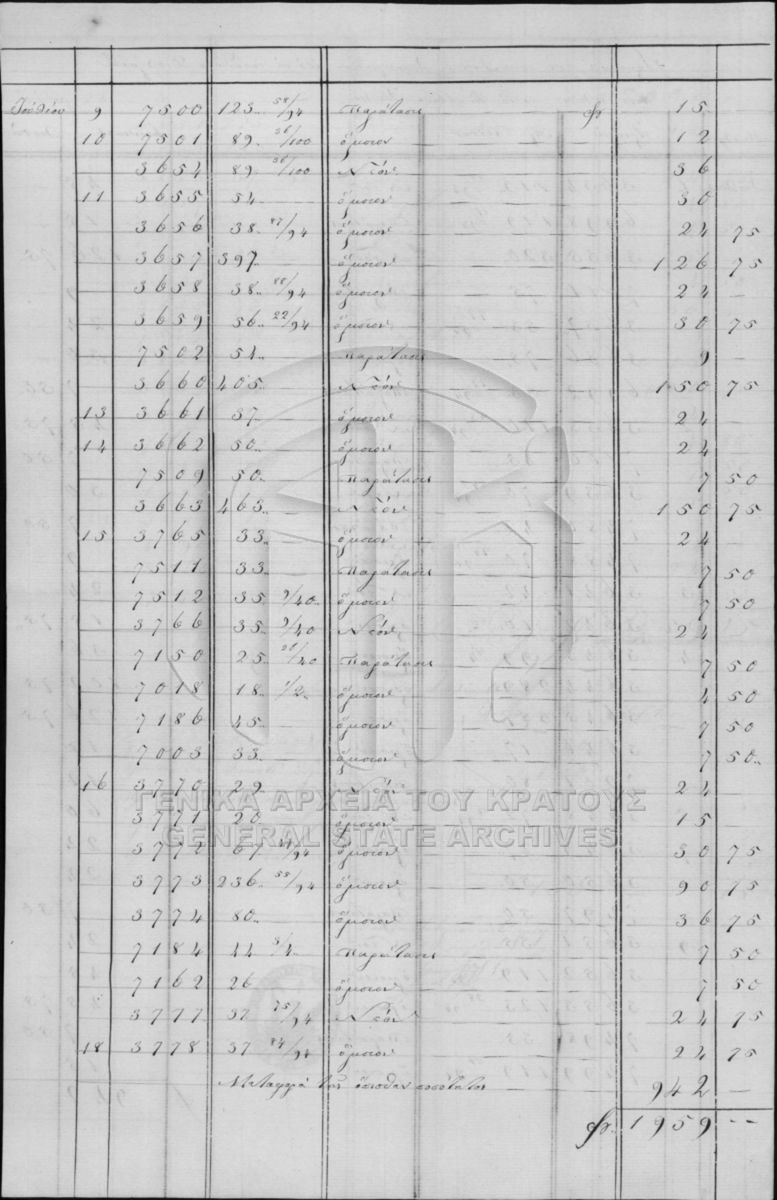 Ἰουλίου 9 7500 123 58/94 Παράτασις φ 15
10 7501 89 36/100 ὅμοιον 12
3654 89 36/100 Νέον 36
11 3655 54 ὅμοιον 30
3656 38 87/94 ὅμοιον 24 75
3657 397 ὅμοιον 126 75
3658 38 88/94 ὅμοιον 24 —
3659 56 22/94 ὅμοιον 30 75
7502 54 παράτασις 9 —
3660 405 Νέον 150 75
13 3661 37 ὅμοιον 24
14 3662 50 ὅμοιον 24
7509 50 παράτασις 7 50
3663 463 Νέον 150 75
15 3765 33 ὅμοιον 24
7511 33 Παράτασις 7 50
7512 35 9/40 ὅμοιον 7 50
3766 35 9/40 Νέον 24
7150 25 20/40 Παράτασις 7 50
7018 18 1/2 ὅμοιον 4 50
7186 45 ὅμοιον 7 50
7003 33 ὅμοιον 7 50
16 3770 29 Νέον 24
ΓΕΝΙΚΑ ΑΡΧΕΙΑ ΤΟΥ ΚΡΑΤΟΥΣ
3771 20 ὅμοιον 15
GENERAL STATE ARCHIVES
3772 67 /94 ὅμοιον 30 75
3773 236 55/94 ὅμοιον 90 75
3774 80 ὅμοιον 36 75
7184 44 3/4 παράτασις 7 50
7162 26 ὅμοιον 7 50
3777 37 75/94 Νέον 24 75
18 3778 37 84/94 ὅμοιον 24 75
Μεταφορὰ τῆς ὄπισθεν ποσότητος 942 —
φ. 1959 --